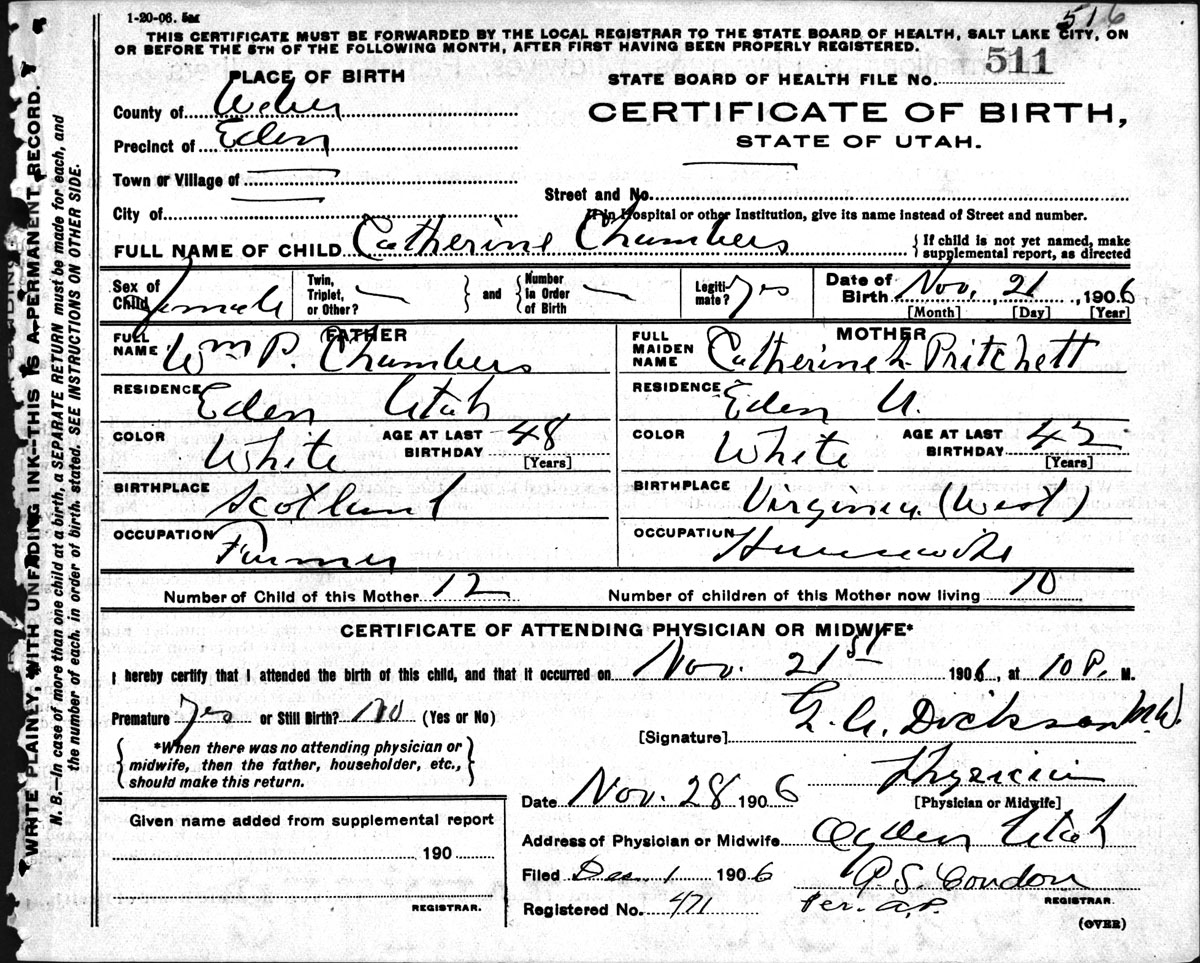 1-20-06.
516
THIS CERTIFICATE MUST BE FORWARDED BY THE LOCAL REGISTRAR TO THE STATE BOARD OF HEALTH, SALT LAKE CITY, ON
OR BEFORE THE 5TH OF THE FOLLOWING MONTH, AFTER FIRST HAVING BEEN PROPERLY REGISTERED.
PLACE OF BIRTH
STATE BOARD OF HEALTH FILE No. 511
County of Weber
CERTIFICATE OF BIRTH,
Precinct of Eden
STATE OF UTAH.
Town or Village of
Street and No.
City of
If in Hospital or other Institution, give its name instead of Street and number.
FULL NAME OF CHILD Catherine Chambers
{ If child is not yet named, make
supplemental report, as directed
Sex of Child female
Twin, Triplet, or Other? — } and { Number in Order of Birth —
Legitimate? Yes
Date of Birth Nov. 21, 1906
[Month] [Day] [Year]
FATHER
FULL NAME Wm P. Chambers
RESIDENCE Eden Utah
COLOR White
AGE AT LAST BIRTHDAY 48 [Years]
BIRTHPLACE Scotland
OCCUPATION Farmer
MOTHER
FULL MAIDEN NAME Catherine L Pritchett
RESIDENCE Eden U.
COLOR White
AGE AT LAST BIRTHDAY [Years]
BIRTHPLACE Virginia (West)
OCCUPATION Housewife
Number of Child of this Mother 12
Number of children of this Mother now living 10
CERTIFICATE OF ATTENDING PHYSICIAN OR MIDWIFE*
I hereby certify that I attended the birth of this child, and that it occurred on Nov. 21st 1906, at 10 P. M.
Premature Yes or Still Birth? No (Yes or No)
{ *When there was no attending physician or
midwife, then the father, householder, etc.,
should make this return. }
[Signature] Dickson M.D.
Physician
[Physician or Midwife]
Date Nov. 28 1906
Address of Physician or Midwife Ogden Utah
Filed Dec. 1 1906
P. S. Condon
REGISTRAR.
Registered No. 471
Per. A.P.
(OVER)
Given name added from supplemental report
190
REGISTRAR.
WRITE PLAINLY, WITH UNFADING INK—THIS IS A PERMANENT RECORD.
N. B.—In case of more than one child at a birth, a SEPARATE RETURN must be made for each, and
the number of each, in order of birth, stated. SEE INSTRUCTIONS ON OTHER SIDE.